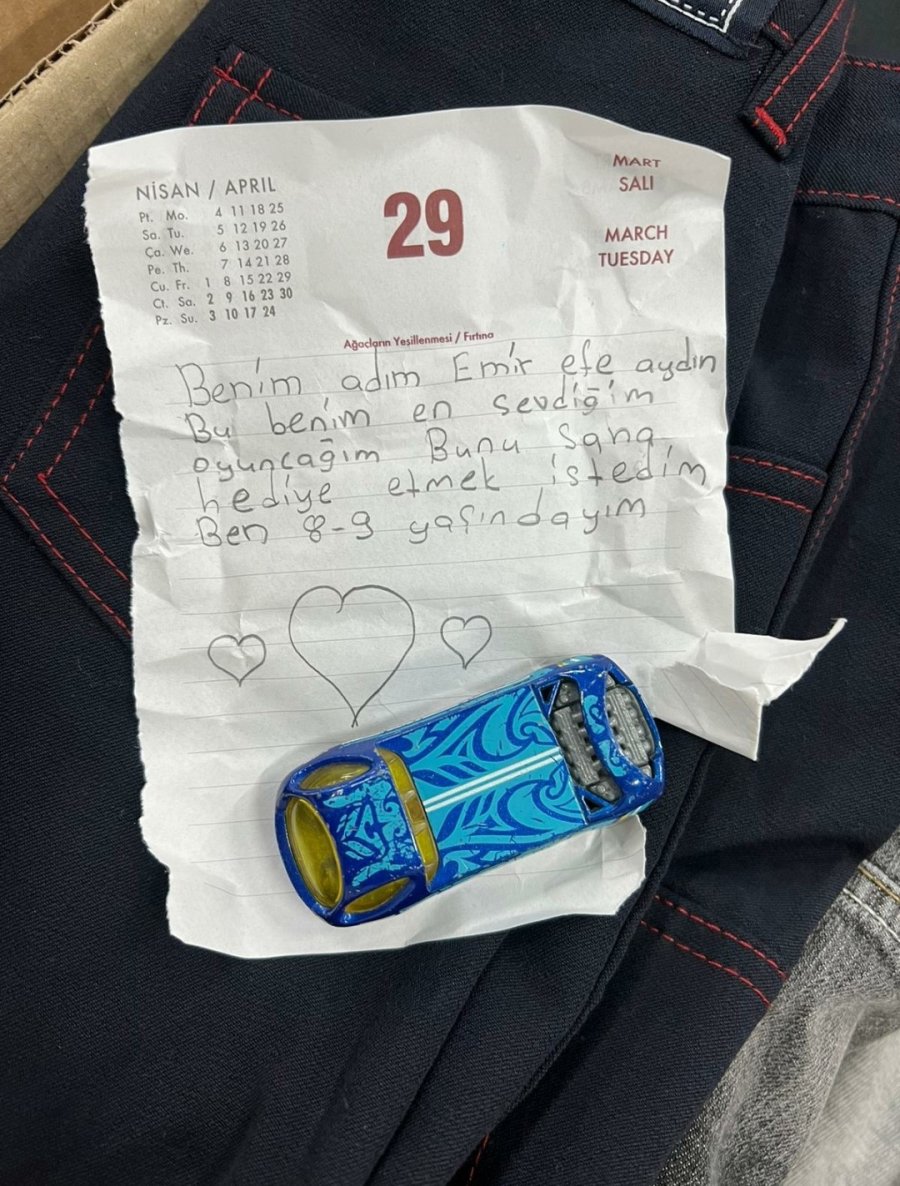 NİSAN / APRIL
Pt. Mo. 4 11 18 25
Sa. Tu. 5 12 19 26
Ça. We. 6 13 20 27
Pe. Th. 7 14 21 28
Cu. Fr. 1 8 15 22 29
Ct. Sa. 2 9 16 23 30
Pz. Su. 3 10 17 24
29
MART
SALI
MARCH
TUESDAY
Ağaçların Yeşillenmesi / Fırtına
Benim adım Emir efe aydın
Bu benim en sevdiğim
oyuncağım Bunu Sana
hediye etmek istedim
Ben 8-9 yaşındayım